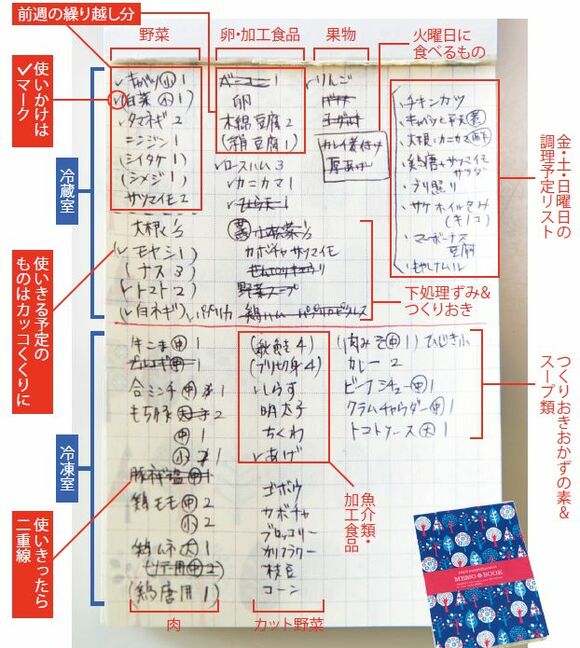 前週の繰り越し分
野菜
卵・加工食品
果物
火曜日に
食べるもの
使いかけは
✓マーク
冷蔵室
使いきる予定の
ものはカッコくくりに
冷凍室
使いきったら
二重線
金・土・日曜日の
調理予定リスト
下処理ずみ&
つくりおき
つくりおきおかずの素&
スープ類
魚介類・
加工食品
肉
カット野菜
✓キャベツ 小 1
(白菜 小 1)
✓タマネギ 2
ニンジン 1
(シイタケ 1)
(シメジ 1)
サツマイモ 2
大根 1/2
(モヤシ 1)
(ナス 3)
(トマト 2)
(白ネギ) ✓パプリカ
ベーコン 1
卵
木綿豆腐 2
(絹豆腐 1)
✓ロースハム 3
✓カニカマ 1
カボチャ サツマイモ
野菜スープ
✓りんご
バナナ
ヨーグルト
カレイ煮付け
厚あげ
チキンカツ
大根とカニカマ
ブリ照り
サケホイルむし
(キノコ)
マーボーナス
豆腐
もやしナムル
牛こま 中 1
プルコギ 中 1
合ミンチ 中 1
もち豚 大 2
中 1
小 1
鶏モモ 中 2
小 2
鶏ムネ 大 1
(鶏唐用 1)
(秋鮭 4)
(ブリ切身 4)
✓しらす
明太子
ちくわ
✓あげ
ゴボウ
カボチャ
ブロッコリー
カリフラワー
枝豆
コーン
(肉みそ 中 1) ひじき 小
カレー 2
ビーフシチュー 中 1
クラムチャウダー 中 1
トマトソース 大 1
MEMO BOOK